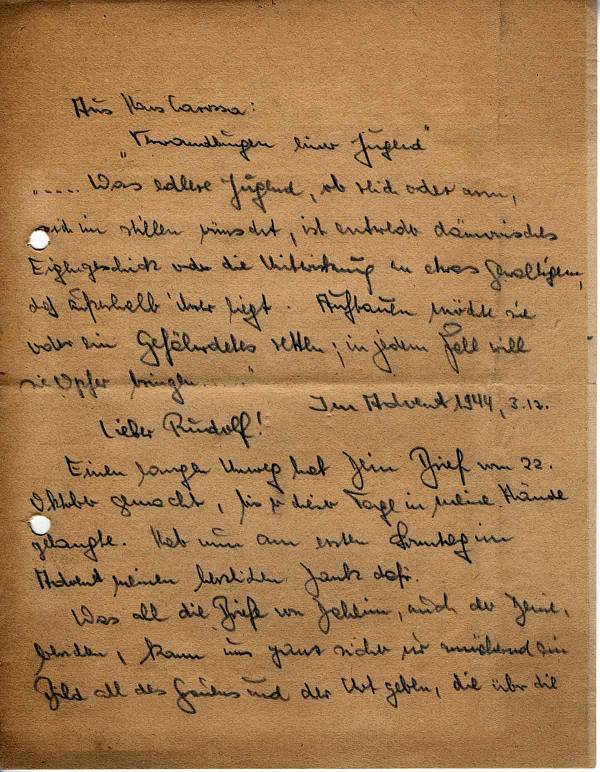 Aus Hans Carossa:
„Verwandlungen einer Jugend"
„..... Was edlere Jugend, ob reich oder arm,
sich im stillen wünscht, ist entweder dämonisches
Eigengeschick oder die Mitwirkung an etwas Gewaltigem,
das außerhalb ihrer liegt. Aufbauen möchte sie
oder ein Gefährdetes retten; in jedem Fall will
sie Opfer bringen....."
Im Advent 1944, 3.12.
Lieber Rudolf!
Einen langen Umweg hat Dein Brief vom 22.
Oktober gemacht, bis er dieser Tage in meine Hände
gelangte. Hab nun am ersten Sonntag im
Advent meinen herzlichen Dank dafür.
Was all die Briefe von daheim, auch der Deine,
berichten, kann uns ganz sicher nur annähernd ein
Bild all des Grauens und der Not geben, die über die